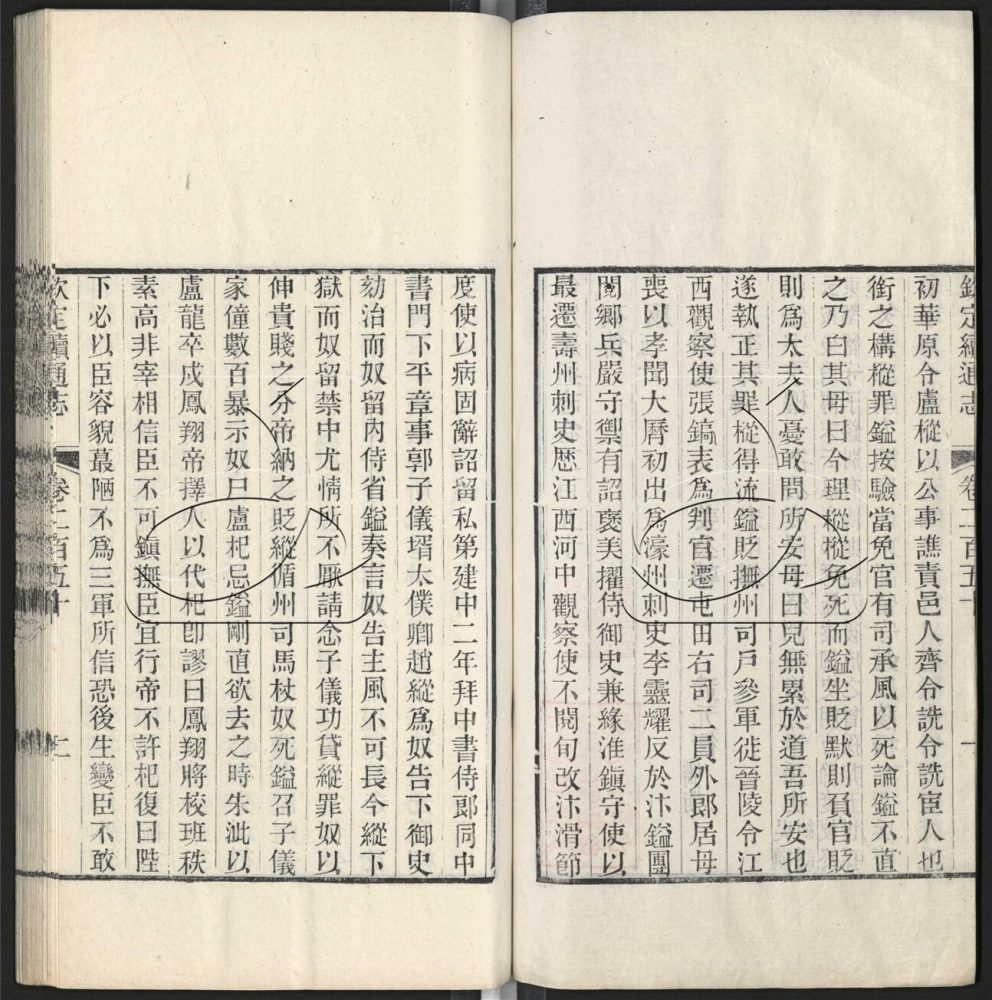 欽定續通志 卷二百五十 一
初華原令盧樅以公事譙責邑人齊令詵令詵宦人也
銜之構樅罪鎰按驗當免官有司承風以死論鎰不直
之乃白其母曰今理樅樅免死而鎰坐貶默則負官貶
則爲太夫人憂敢問所安母曰兒無累於道吾所安也
遂執正其罪樅得流鎰貶撫州司戶參軍徙晉陵令江
西觀察使張鎬表爲判官遷屯田右司二員外郎居母
喪以孝聞大曆初出爲濠州刺史李靈耀反於汴鎰團
閱鄉兵嚴守禦有詔褒美擢侍御史兼緣淮鎮守使以
最遷壽州刺史歷江西河中觀察使不閱旬改汴滑節
度使以病固辭詔留私第建中二年拜中書侍郎同中
書門下平章事郭子儀壻太僕卿趙縱爲奴告下御史
劾治而奴留內侍省鎰奏言奴告主風不可長今縱下
獄而奴留禁中尤情所不厭請念子儀功貸縱罪奴以
伸貴賤之分帝納之貶縱循州司馬杖奴死鎰召子儀
家僮數百暴示奴尸盧杞忌鎰剛直欲去之時朱泚以
盧龍卒戍鳳翔帝擇人以代杞卽謬曰鳳翔將校班秩
素高非宰相信臣不可鎮撫臣宜行帝不許杞復曰陛
下必以臣容貌蕞陋不爲三軍所信恐後生變臣不敢
欽定續通志 卷二百五十 二